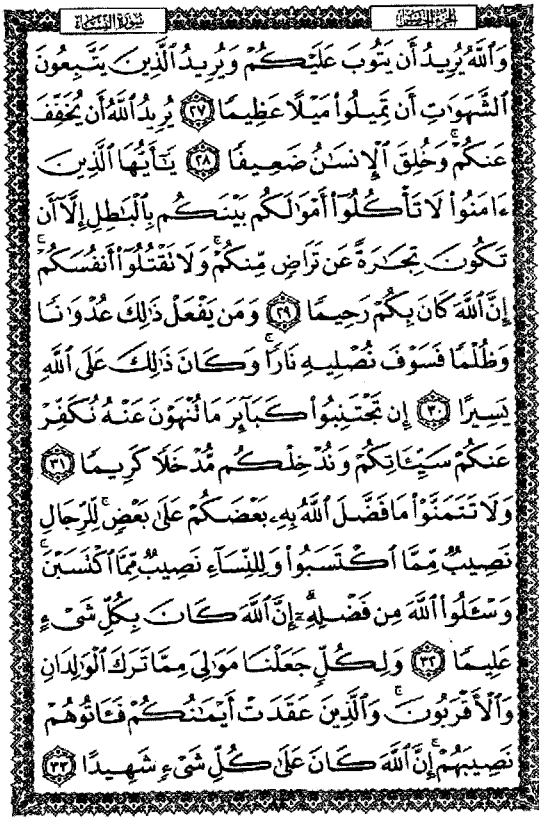 الجزء الخامس
سورة النساء
وَٱللَّهُ يُرِيدُ أَن يَتُوبَ عَلَيْكُمْ وَيُرِيدُ ٱلَّذِينَ يَتَّبِعُونَ
ٱلشَّهَوَٰتِ أَن تَمِيلُوا۟ مَيْلًا عَظِيمًا ٢٧ يُرِيدُ ٱللَّهُ أَن يُخَفِّفَ
عَنكُمْ ۚ وَخُلِقَ ٱلْإِنسَٰنُ ضَعِيفًا ٢٨ يَٰٓأَيُّهَا ٱلَّذِينَ
ءَامَنُوا۟ لَا تَأْكُلُوٓا۟ أَمْوَٰلَكُم بَيْنَكُم بِٱلْبَٰطِلِ إِلَّآ أَن
تَكُونَ تِجَٰرَةً عَن تَرَاضٍ مِّنكُمْ ۚ وَلَا تَقْتُلُوٓا۟ أَنفُسَكُمْ ۚ
إِنَّ ٱللَّهَ كَانَ بِكُمْ رَحِيمًا ٢٩ وَمَن يَفْعَلْ ذَٰلِكَ عُدْوَٰنًا
وَظُلْمًا فَسَوْفَ نُصْلِيهِ نَارًا ۚ وَكَانَ ذَٰلِكَ عَلَى ٱللَّهِ
يَسِيرًا ٣٠ إِن تَجْتَنِبُوا۟ كَبَآئِرَ مَا تُنْهَوْنَ عَنْهُ نُكَفِّرْ
عَنكُمْ سَيِّـَٔاتِكُمْ وَنُدْخِلْكُم مُّدْخَلًا كَرِيمًا ٣١
وَلَا تَتَمَنَّوْا۟ مَا فَضَّلَ ٱللَّهُ بِهِۦ بَعْضَكُمْ عَلَىٰ بَعْضٍ ۚ لِّلرِّجَالِ
نَصِيبٌ مِّمَّا ٱكْتَسَبُوا۟ ۖ وَلِلنِّسَآءِ نَصِيبٌ مِّمَّا ٱكْتَسَبْنَ ۚ
وَسْـَٔلُوا۟ ٱللَّهَ مِن فَضْلِهِۦٓ ۗ إِنَّ ٱللَّهَ كَانَ بِكُلِّ شَىْءٍ
عَلِيمًا ٣٢ وَلِكُلٍّ جَعَلْنَا مَوَٰلِىَ مِمَّا تَرَكَ ٱلْوَٰلِدَانِ
وَٱلْأَقْرَبُونَ ۚ وَٱلَّذِينَ عَقَدَتْ أَيْمَٰنُكُمْ فَـَٔاتُوهُمْ
نَصِيبَهُمْ ۚ إِنَّ ٱللَّهَ كَانَ عَلَىٰ كُلِّ شَىْءٍ شَهِيدًا ٣٣